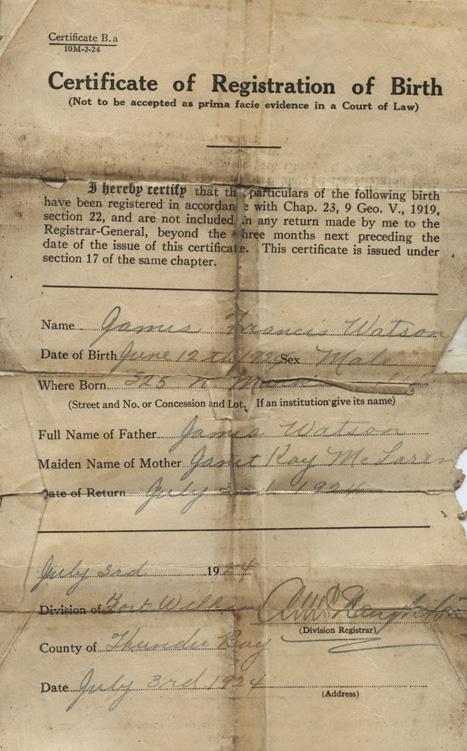 Certificate B.a
10M-2-24
Certificate of Registration of Birth
(Not to be accepted as prima facie evidence in a Court of Law)
I hereby certify that the particulars of the following birth
have been registered in accordance with Chap. 23, 9 Geo. V., 1919,
section 22, and are not included in any return made by me to the
Registrar-General, beyond the three months next preceding the
date of the issue of this certificate. This certificate is issued under
section 17 of the same chapter.
Name James Francis Watson
Date of Birth June 12th Sex Male
Where Born 325 N
(Street and No. or Concession and Lot, If an institution give its name)
Full Name of Father James Watson
Maiden Name of Mother Janet Kay McLaren
Date of Return July 1924
July 3rd 1924
Division of Fort William
(Division Registrar)
County of Thunder Bay
Date July 3rd 1924
(Address)